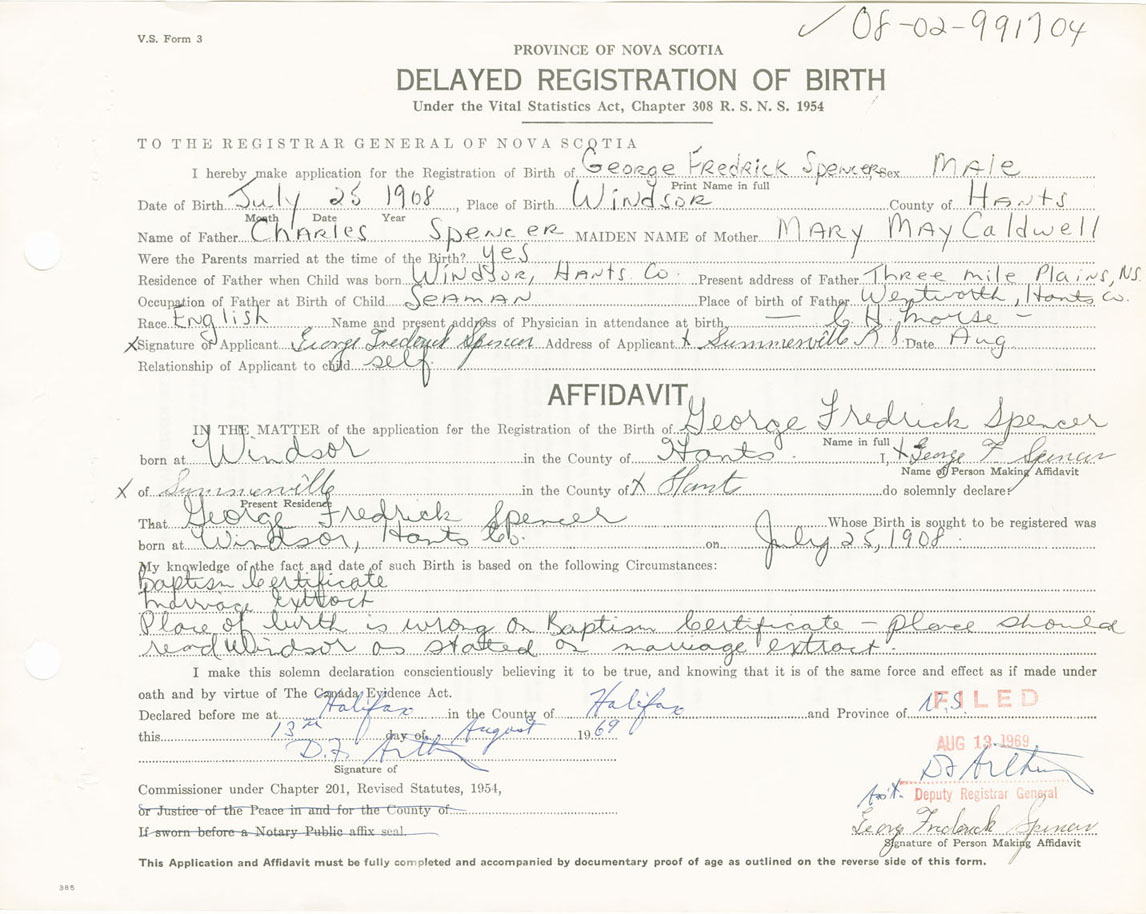 ✓ 08-02-991704
V.S. Form 3
PROVINCE OF NOVA SCOTIA
DELAYED REGISTRATION OF BIRTH
Under the Vital Statistics Act, Chapter 308 R. S. N. S. 1954
TO THE REGISTRAR GENERAL OF NOVA SCOTIA
I hereby make application for the Registration of Birth of George Fredrick Spencer Sex Male
Print Name in full
Date of Birth July 25 1908, Place of Birth Windsor County of Hants
Month Date Year
Name of Father Charles Spencer MAIDEN NAME of Mother Mary May Caldwell
Were the Parents married at the time of the Birth? yes
Residence of Father when Child was born Windsor, Hants Co. Present address of Father Three mile Plains, NS.
Occupation of Father at Birth of Child Seaman Place of birth of Father Wentworth, Hants Co.
Race English Name and present address of Physician in attendance at birth, — C H. Morse –
X Signature of Applicant George Frederick Spencer Address of Applicant X Summerville N S. Date Aug
Relationship of Applicant to child self
AFFIDAVIT
IN THE MATTER of the application for the Registration of the Birth of George Fredrick Spencer
Name in full
born at Windsor in the County of Hants. I, X George F Spencer
Name of Person Making Affidavit
X of Summerville in the County of X Hants do solemnly declare:
Present Residence
That George Fredrick Spencer Whose Birth is sought to be registered was
born at Windsor, Hants Co. on July 25, 1908.
My knowledge of the fact and date of such Birth is based on the following Circumstances:
Baptism Certificate
Marriage Extract
Place of birth is wrong on Baptism Certificate – place should
read Windsor as stated on marriage extract.
I make this solemn declaration conscientiously believing it to be true, and knowing that it is of the same force and effect as if made under
oath and by virtue of The Canada Evidence Act.
Declared before me at Halifax in the County of Halifax and Province of N.S.
FILED
this 13th day of August 1969
AUG 13 1969
D.F. Arthur
Signature of
D F Arthur
Commissioner under Chapter 201, Revised Statutes, 1954,
Ass't. Deputy Registrar General
or Justice of the Peace in and for the County of
George Frederick Spencer
If sworn before a Notary Public affix seal.
Signature of Person Making Affidavit
This Application and Affidavit must be fully completed and accompanied by documentary proof of age as outlined on the reverse side of this form.
385